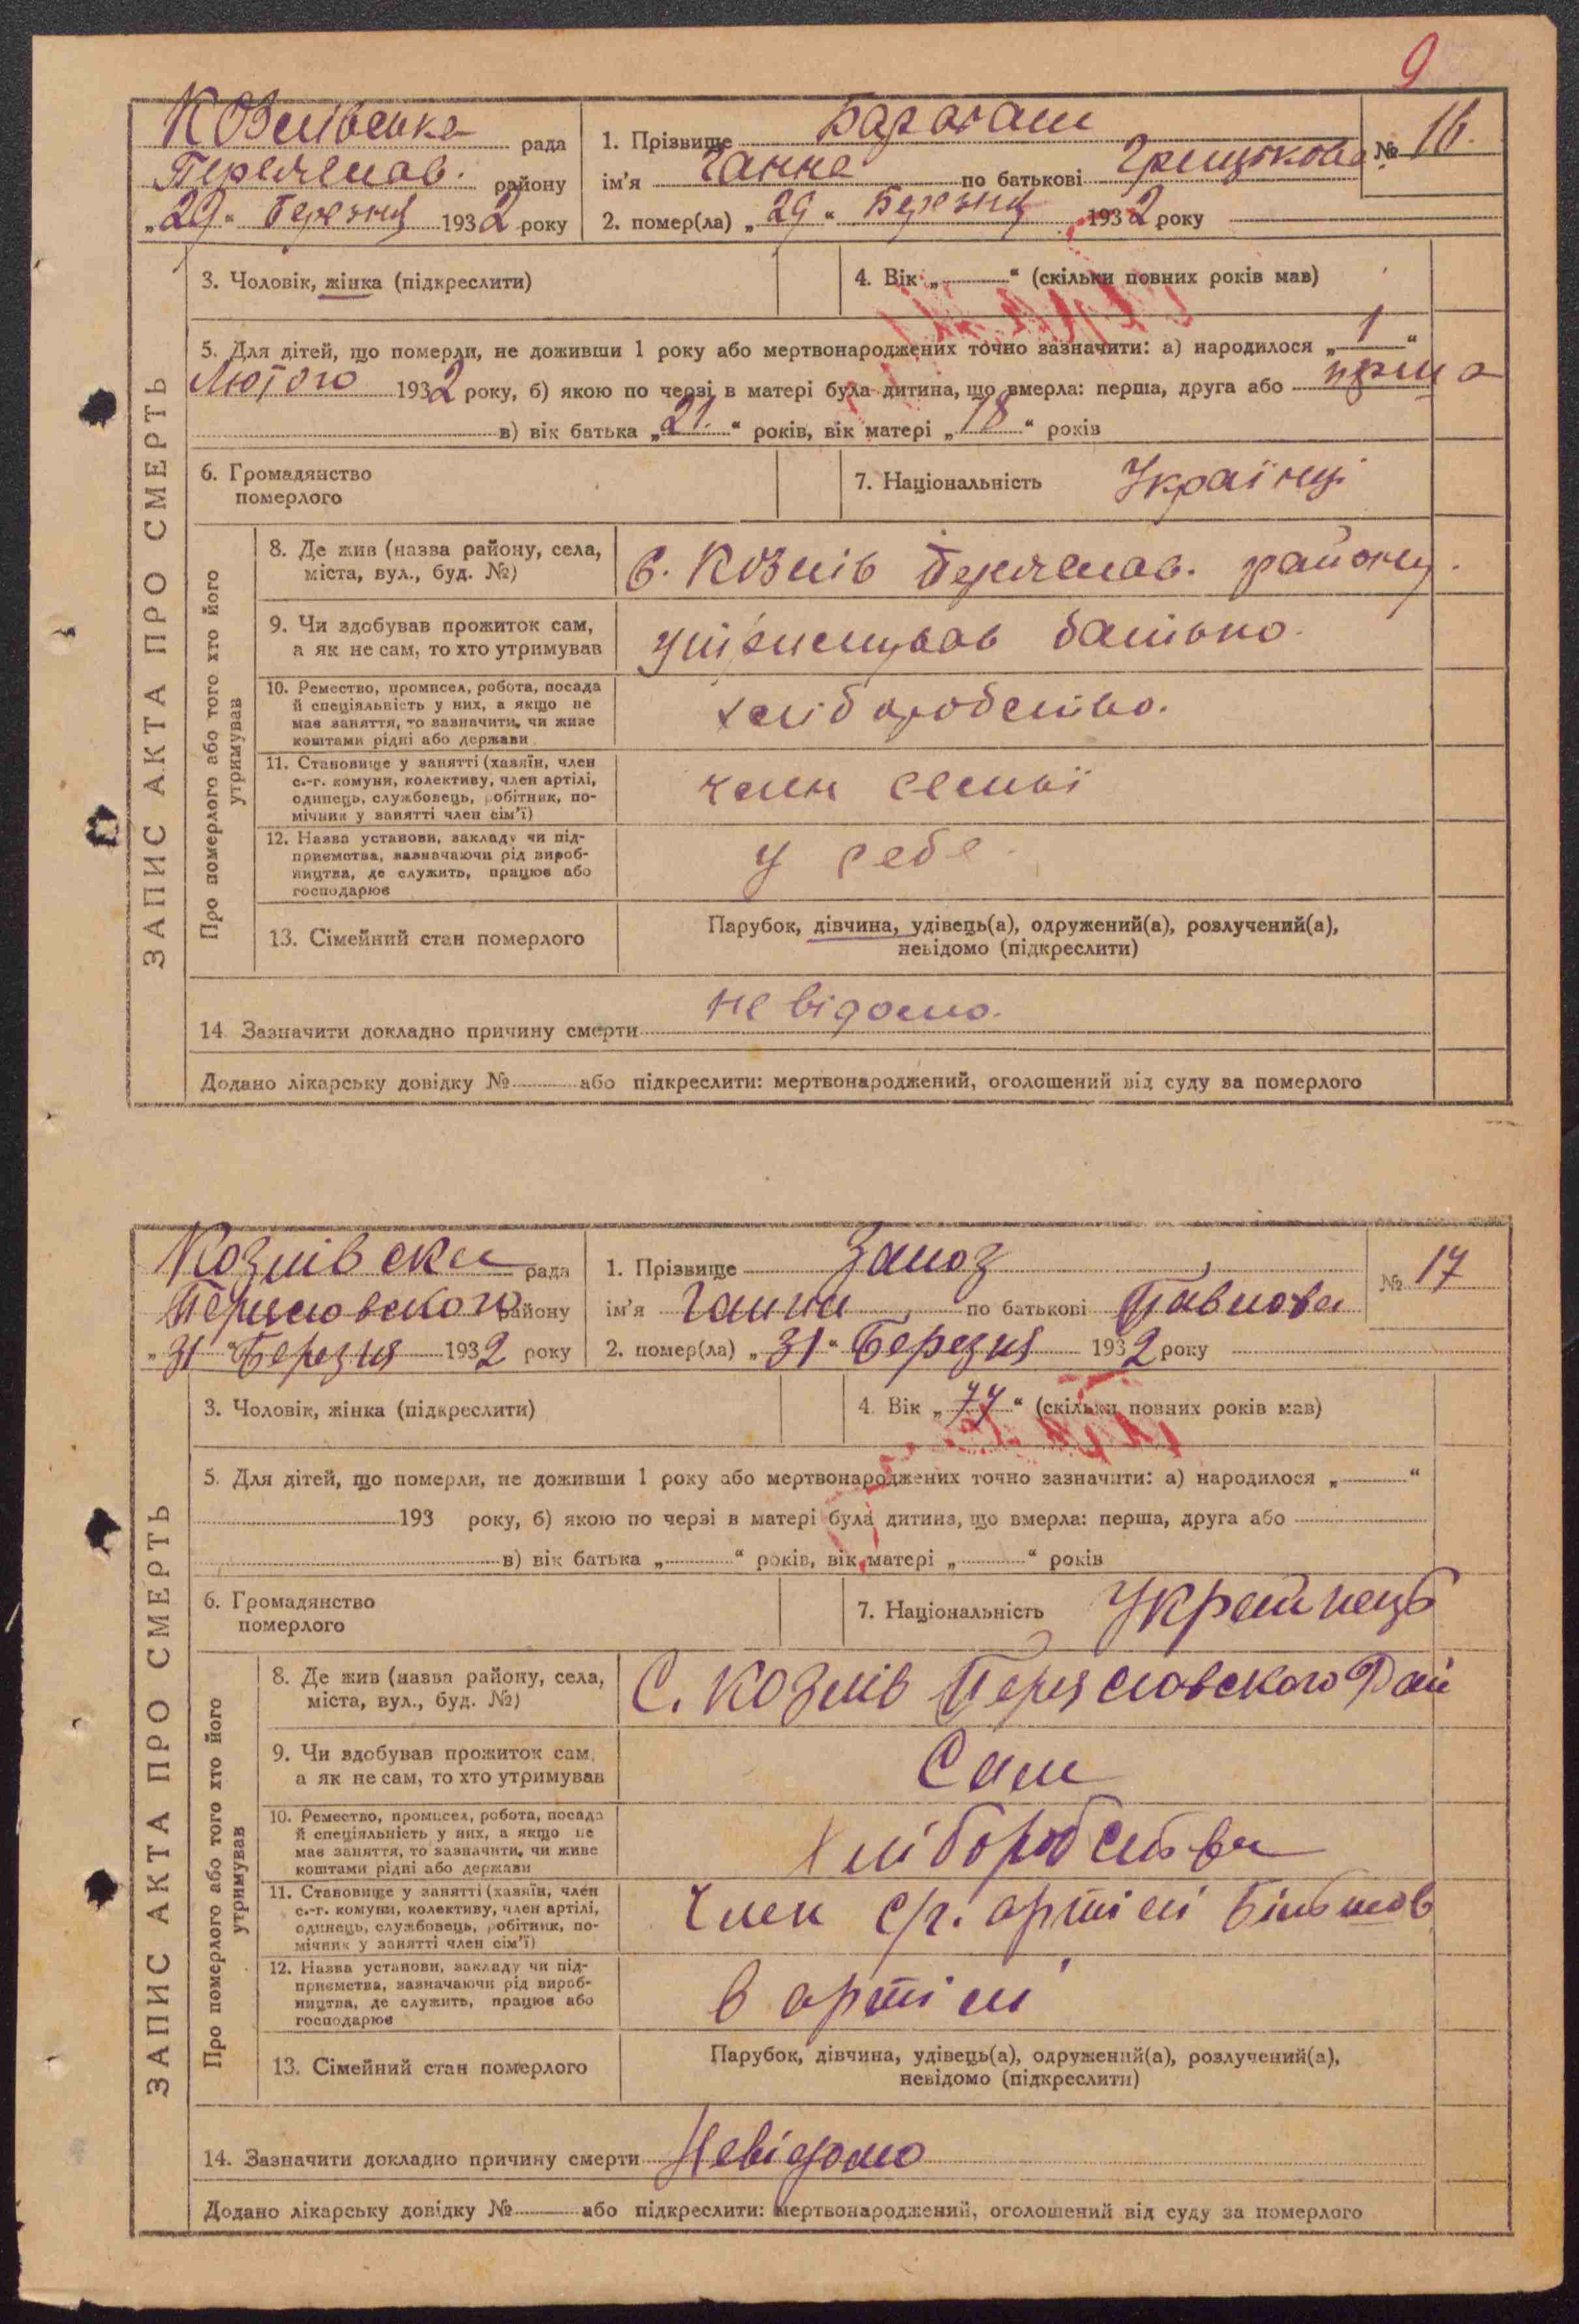 9
Козлівська рада
Переяслав. району
„29“ Березня 1932 року
1. Прізвище Барабаш
ім'я Ганна по батькові Грицькова
№ 16.
2. помер(ла) „29“ Березня 1932 року
3. Чоловік, жінка (підкреслити)
4. Вік „ “ (скільки повних років мав)
5. Для дітей, що померли, не доживши 1 року або мертвонароджених точно зазначити: а) народилося „1“
Лютого 1932 року, б) якою по черзі в матері була дитина, що вмерла: перша, друга або перша
в) вік батька „21.“ років, вік матері „18“ років
6. Громадянство
померлого
7. Національність Українці
ЗАПИС АКТА ПРО СМЕРТЬ
Про померлого або того хто його
утримував
8. Де жив (назва району, села,
міста, вул., буд. №)
с. Козлів Переяслав. району.
9. Чи здобував прожиток сам,
а як не сам, то хто утримував
утримував батько.
10. Ремество, промисел, робота, посада
й спеціяльність у них, а якщо не
має заняття, то зазначити, чи живе
коштами рідні або держави
хліборобство.
11. Становище у занятті (хазяїн, член
с.-г. комуни, колективу, член артілі,
одинець, службовець, робітник, по-
мічник у занятті член сім'ї)
член семьї
12. Назва установи, закладу чи під-
приємства, зазначаючи рід вироб-
ництва, де служить, працює або
господарює
у себе
13. Сімейний стан померлого
Парубок, дівчина, удівець(а), одружений(а), розлучений(а),
невідомо (підкреслити)
14. Зазначити докладно причину смерти не відомо.
Додано лікарську довідку № або підкреслити: мертвонароджений, оголошений від суду за померлого
Козлівська рада
Переясловского району
„31“ Березня 1932 року
1. Прізвище
ім'я Ганна по батькові Павлова
№ 17
2. помер(ла) „31“ Березня 1932 року
3. Чоловік, жінка (підкреслити)
4. Вік „77“ (скільки повних років мав)
5. Для дітей, що померли, не доживши 1 року або мертвонароджених точно зазначити: а) народилося „ “
193 року, б) якою по черзі в матері була дитина, що вмерла: перша, друга або
в) вік батька „ “ років, вік матері „ “ років
6. Громадянство
померлого
7. Національність Украинець
ЗАПИС АКТА ПРО СМЕРТЬ
Про померлого або того хто його
утримував
8. Де жив (назва району, села,
міста, вул., буд. №)
С. Козлів Переясловского Рай
9. Чи здобував прожиток сам,
а як не сам, то хто утримував
Сам
10. Ремество, промисел, робота, посада
й спеціяльність у них, а якщо не
має заняття, то зазначити, чи живе
коштами рідні або держави
Хліборобства
11. Становище у занятті (хазяїн, член
с.-г. комуни, колективу, член артілі,
одинець, службовець, робітник, по-
мічник у занятті член сім'ї)
Член с/г. артілі Більшов
12. Назва установи, закладу чи під-
приємства, зазначаючи рід вироб-
ництва, де служить, працює або
господарює
в артілі
13. Сімейний стан померлого
Парубок, дівчина, удівець(а), одружений(а), розлучений(а),
невідомо (підкреслити)
14. Зазначити докладно причину смерти Невідомо
Додано лікарську довідку № або підкреслити: мертвонароджений, оголошений від суду за померлого